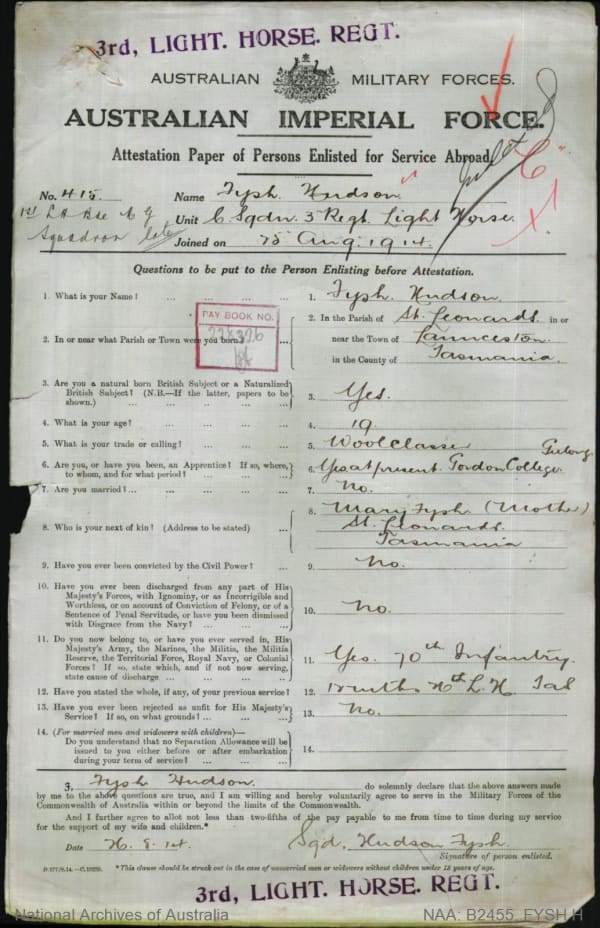 3rd, LIGHT. HORSE. REGT.
AUSTRALIAN MILITARY FORCES.
AUSTRALIAN IMPERIAL FORCE.
Attestation Paper of Persons Enlisted for Service Abroad
No. 415. Name Fysh Hudson
Unit C. Sqdn. 3 Regt. Light Horse.
Squadron
Joined on Aug. 1914.
Questions to be put to the Person Enlisting before Attestation.
1. What is your Name? ... ... ... ... 1. Fysh. Hudson.
PAY BOOK NO.
2. In or near what Parish or Town were you born? ... 2. In the Parish of St. Leonards. in or
near the Town of Launceston.
in the County of Tasmania.
3. Are you a natural born British Subject or a Naturalized
British Subject? (N.B.—If the latter, papers to be
shown.) ... ... ... ... ... 3. Yes.
4. What is your age? ... ... ... ... 4. 19
5. What is your trade or calling? ... ... ... 5. Woolclasser
6. Are you, or have you been, an Apprentice? If so, where,
to whom, and for what period? ... ... ... 6. Yes at present. Gordon College. Geelong
7. Are you married? ... ... ... ... 7. No.
8. Who is your next of kin? (Address to be stated) ... 8. Mary Fysh (Mother)
St. Leonards.
Tasmania
9. Have you ever been convicted by the Civil Power? ... 9. No.
10. Have you ever been discharged from any part of His
Majesty's Forces, with Ignominy, or as Incorrigible and
Worthless, or on account of Conviction of Felony, or of a
Sentence of Penal Servitude, or have you been dismissed
with Disgrace from the Navy? ... ... ... 10. No.
11. Do you now belong to, or have you ever served in, His
Majesty's Army, the Marines, the Militia, the Militia
Reserve, the Territorial Force, Royal Navy, or Colonial
Forces? If so, state which, and if not now serving,
state cause of discharge ... ... ... ... 11. Yes. 70th Infantry.
12. Have you stated the whole, if any, of your previous service? 12. L. H. Tas
13. Have you ever been rejected as unfit for His Majesty's
Service? If so, on what grounds? ... ... ... 13. No.
14. (For married men and widowers with children)—
Do you understand that no Separation Allowance will be
issued to you either before or after embarkation
during your term of service? ... ... ... 14.
I, Fysh Hudson. do solemnly declare that the above answers made
by me to the above questions are true, and I am willing and hereby voluntarily agree to serve in the Military Forces of the
Commonwealth of Australia within or beyond the limits of the Commonwealth.
And I further agree to allot not less than two-fifths of the pay payable to me from time to time during my service
for the support of my wife and children.*
Date 26. 8. 14. Sgd. Hudson Fysh
Signature of person enlisted.
*This clause should be struck out in the case of unmarried men or widowers without children under 18 years of age.
3rd, LIGHT. HORSE. REGT.
National Archives of Australia NAA: B2455, FYSH H